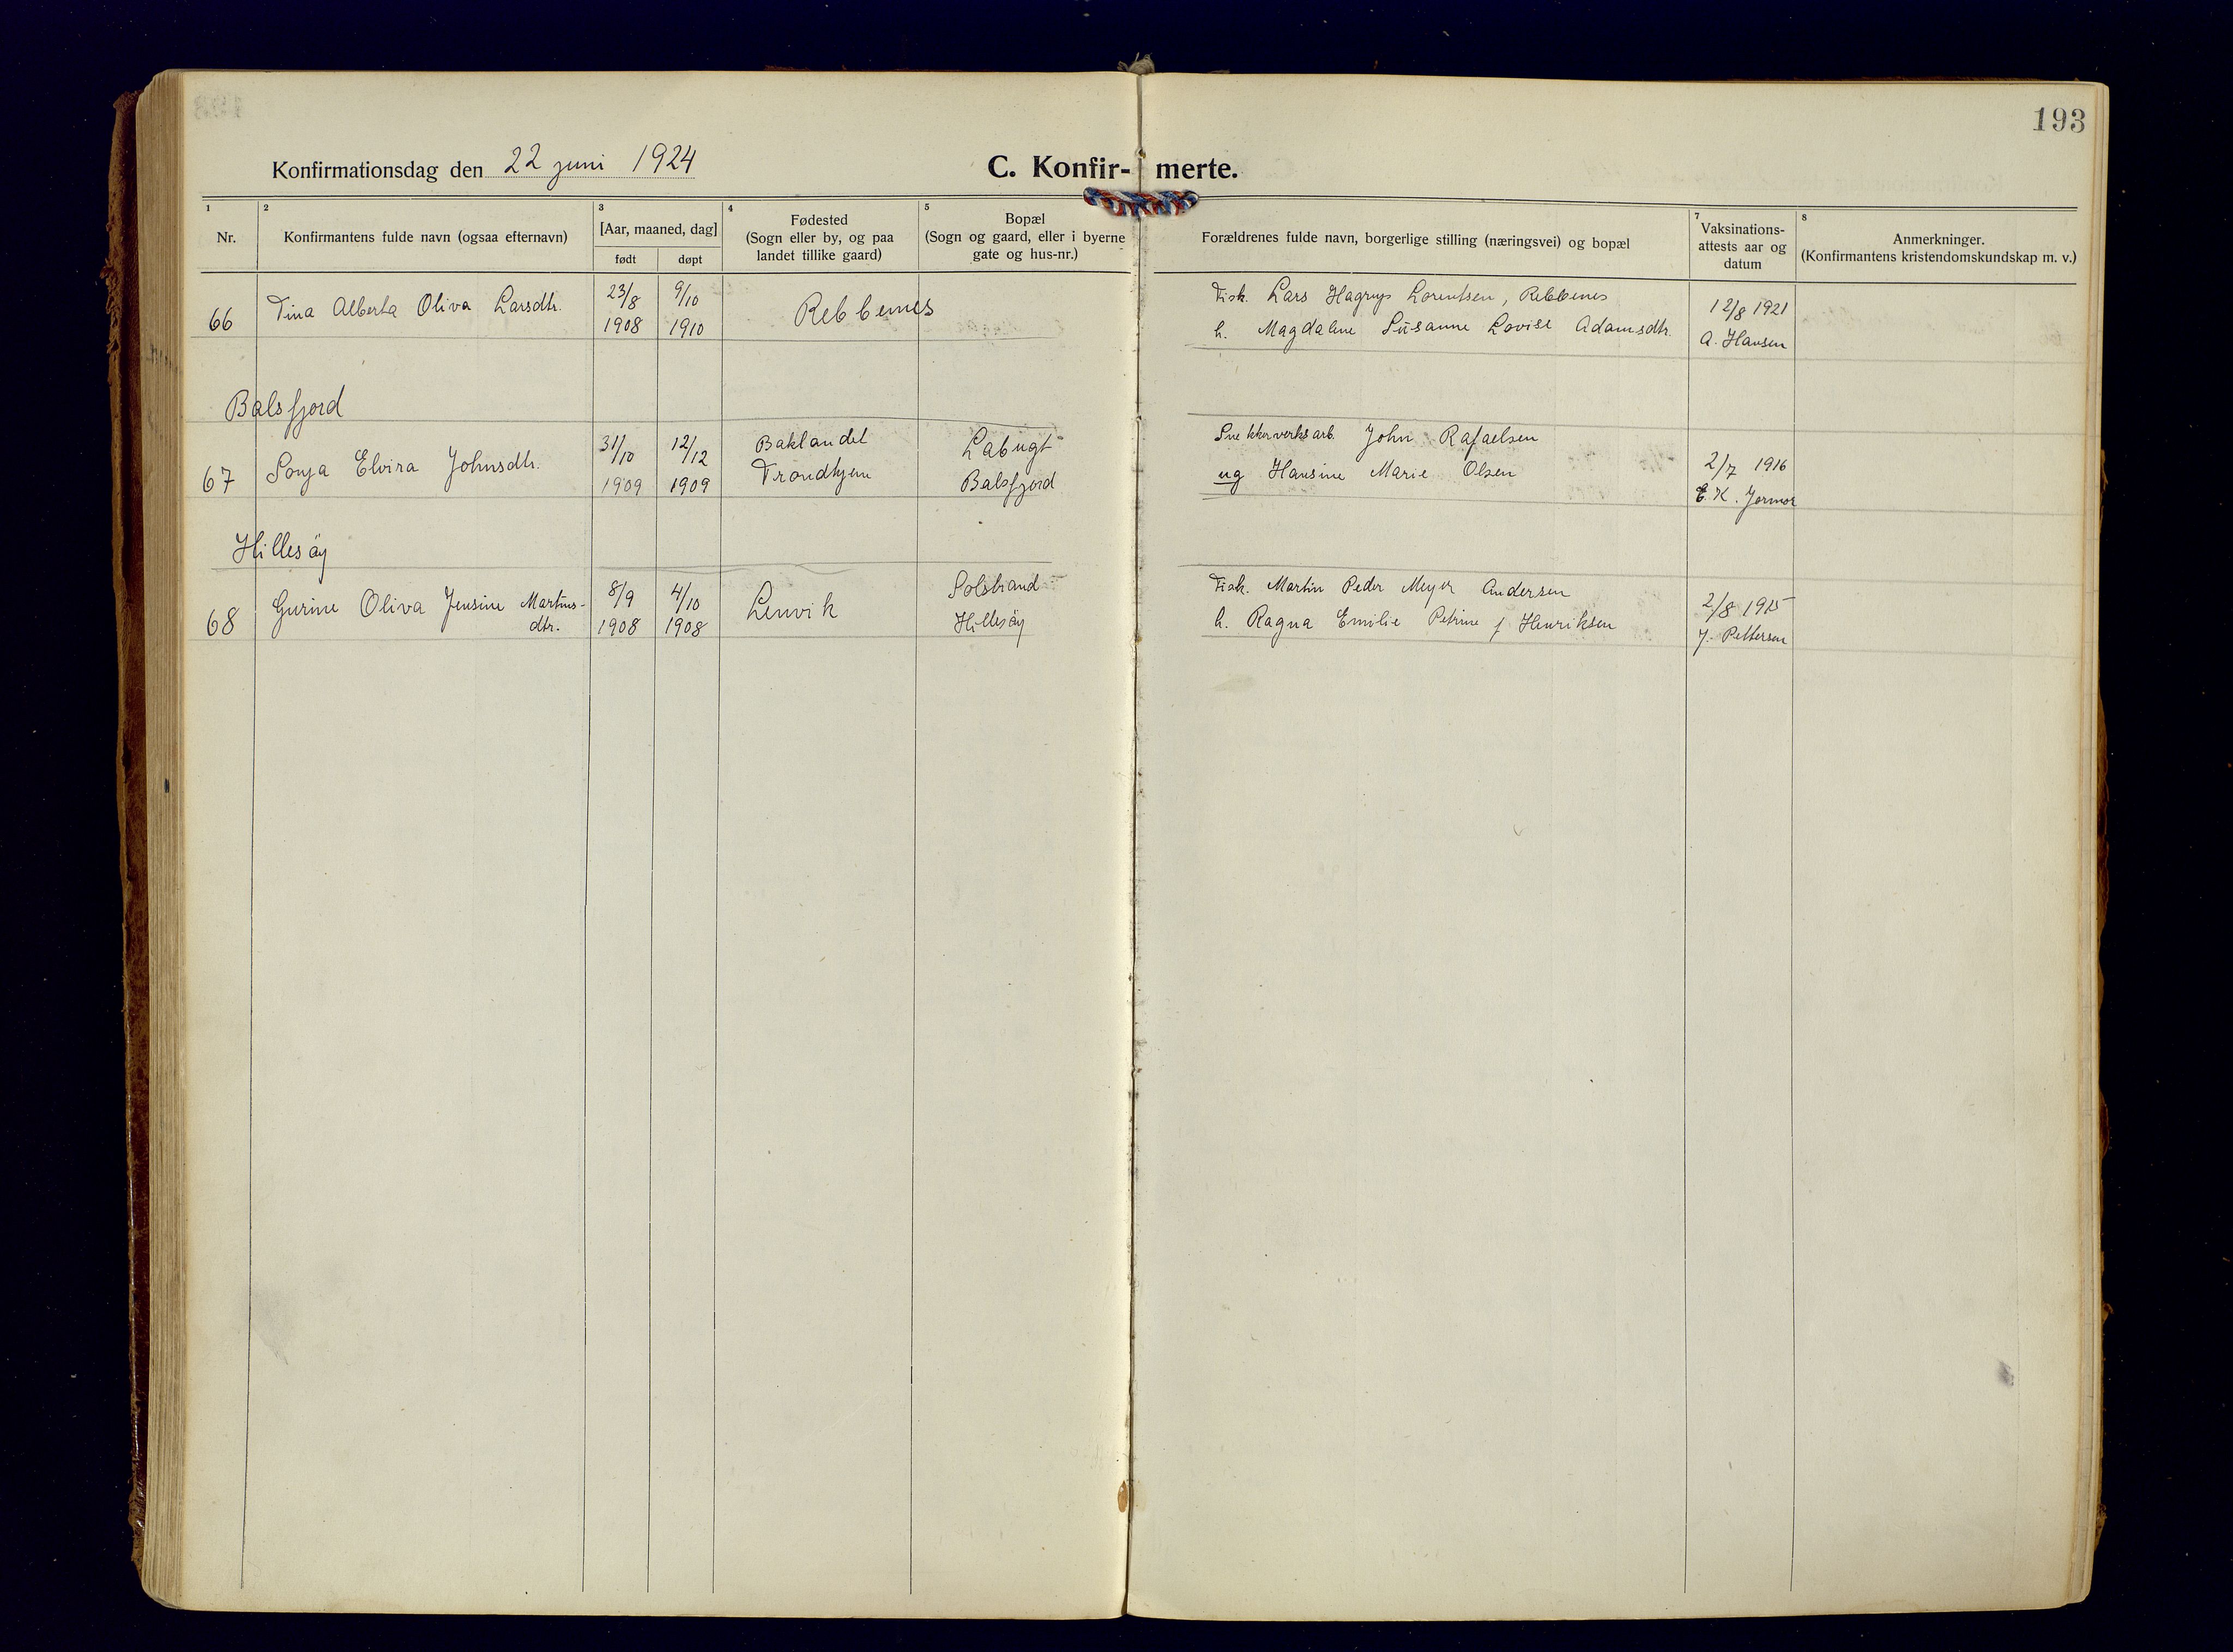 193
Konfirmationsdag den 22 juni 1924
C. Konfir- merte.
1
2
3
4
5
7
8
Nr.
Konfirmantens fulde navn (ogsaa efternavn)
[Aar, maaned, dag]
født
døpt
Fødested
(Sogn eller by, og paa
landet tillike gaard)
Bopæl
(Sogn og gaard, eller i byerne
gate og hus-nr.)
Forældrenes fulde navn, borgerlige stilling (næringsvei) og bopæl
Vaksinations-
attests aar og
datum
Anmerkninger.
(Konfirmantens kristendomskundskap m. v.)
66
Tina Alberta Oliva Larsdtr.
23/8
1908
9/10
1910
Rebbenes
Fisk. Lars Hagrup Lorentsen, Rebbenes
h. Magdalene Susanne Lovise Adamsdtr.
12/8 1921
A. Hansen
Balsfjord
67
Sonja Elvira Johnsdtr.
31/10
1909
12/12
1909
Baklandet
Trondhjem
Labugt
Balsfjord
Snekkerverksarb. John Rafaelsen
ug Hansine Marie Olsen
2/7 1916
E. K. Jermos
Hillesöy
68
Gurine Oliva Jensine Martins-
dtr.
8/9
1908
4/10
1908
Lenvik
Solstrand
Hillesöy
Fisk. Martin Peder Meyer Andersen
h. Ragna Emilie Petrine f Henriksen
2/8 1915
J. Pettersen